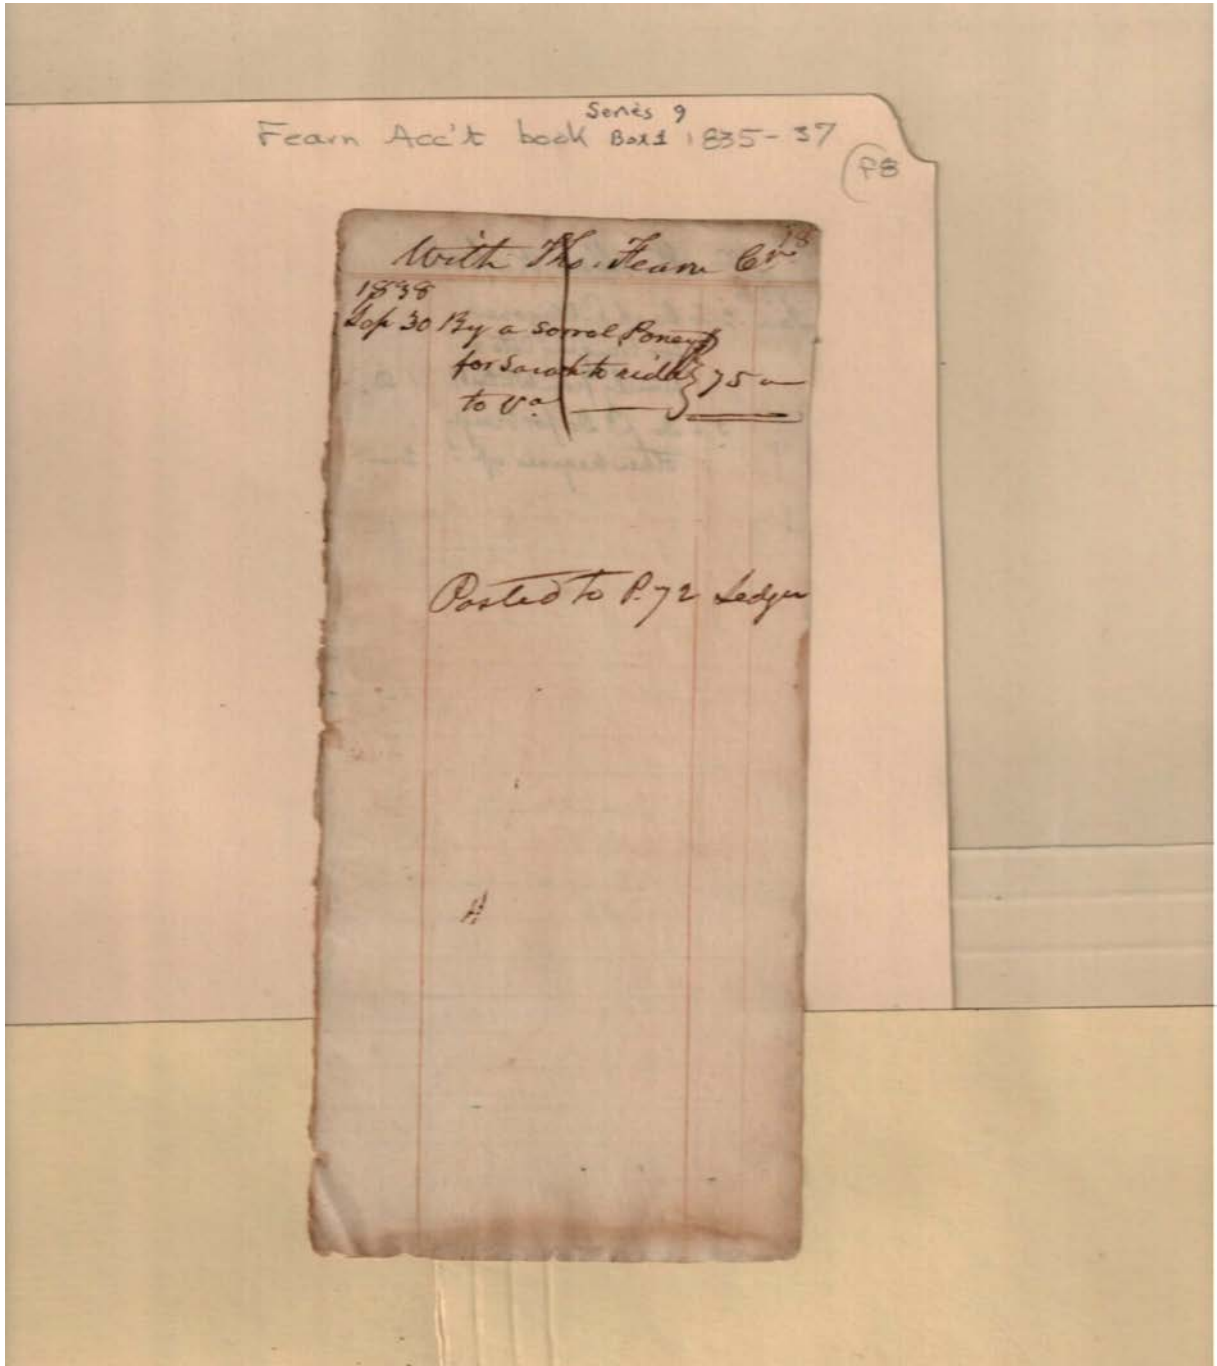 Series 9
Fearn Acc't book Box 1 1835-37
P8
18
With Tho. Fearn Cr
1838
Sep 30 By a sorrel Poney
for Sarah to ride } 75 "
to Va
Posted to P. 72 Ledger